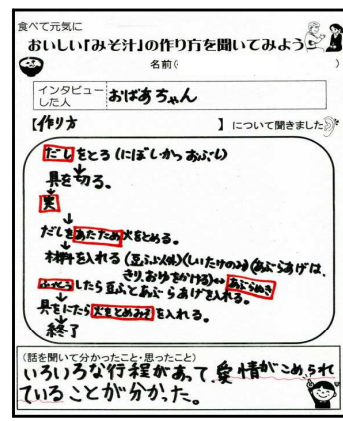 食べて元気に
おいしい「みそ汁」の作り方を聞いてみよう
名前( )
インタビューした人 おばあちゃん
【作り方 】について聞きました
だしをとる(にぼしかつおぶし)
↓
具を切る。
↓
実
↓
だしをあたため火をとめる。
↓
材料を入れる(豆ふ以外)(しいたけのみ)(あぶらあげは、
きり、おゆをかける)↔あぶらぬき
ふっとうしたら豆ふとあぶらあげを入れる。
↓
具をにたら火をとめみそを入れる。
↓
終了
(話を聞いて分かったこと・思ったこと)
いろいろな行程があって、愛情がこめられ
ていることが分かった。